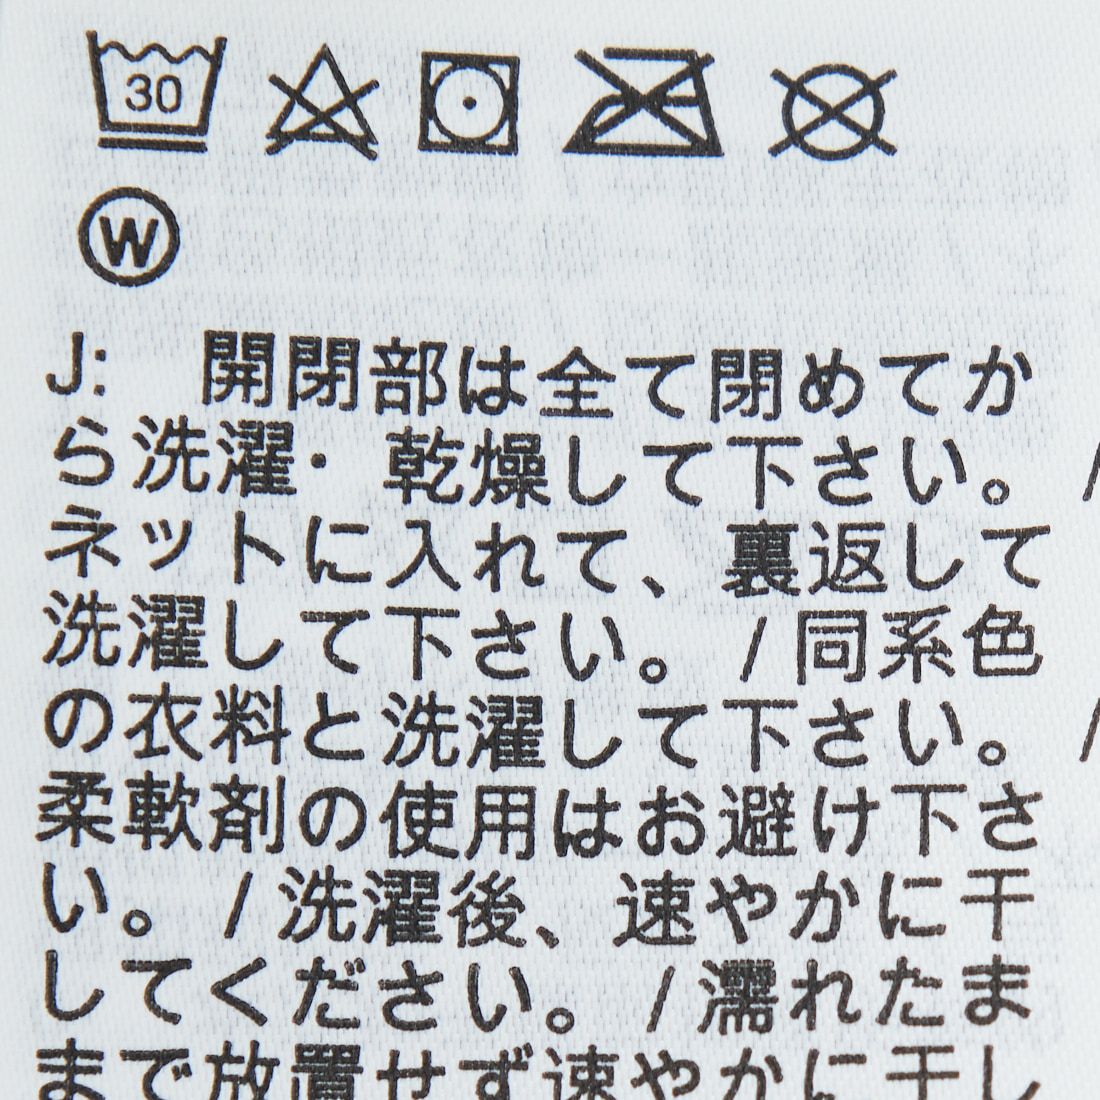 30
W
J: 開閉部は全て閉めてか
ら洗濯・乾燥して下さい。/
ネットに入れて、裏返して
洗濯して下さい。/同系色
の衣料と洗濯して下さい。/
柔軟剤の使用はお避け下さ
い。/洗濯後、速やかに干
してください。/濡れたま
まで放置せず速やかに干し